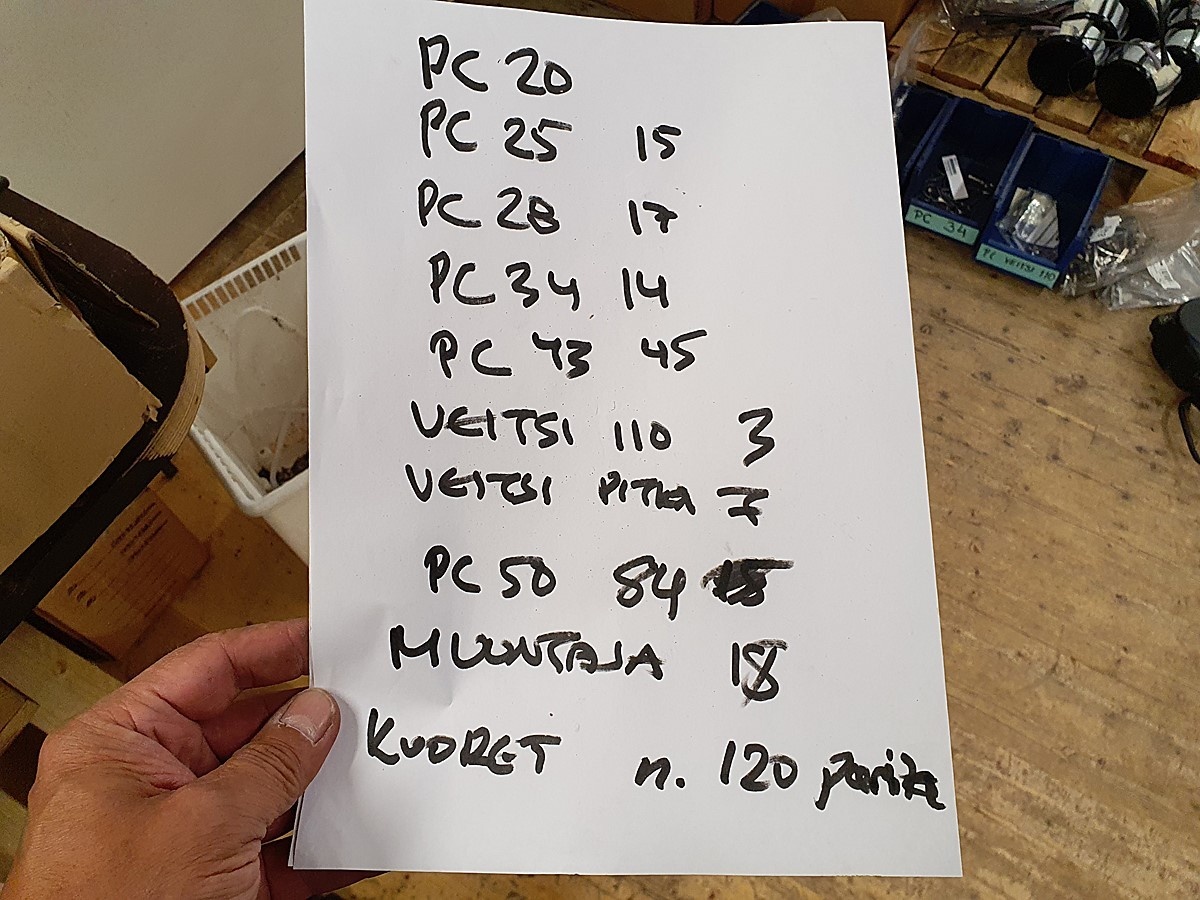 PC 20
PC 25 15
PC 28 17
PC 34 14
PC 43 45
VEITSI 110 3
VEITSI PITKÄ 7
PC 50 84
MUUNTAJA 18
KUORET n. 120 paria
PC 34
PC VEITSI 110